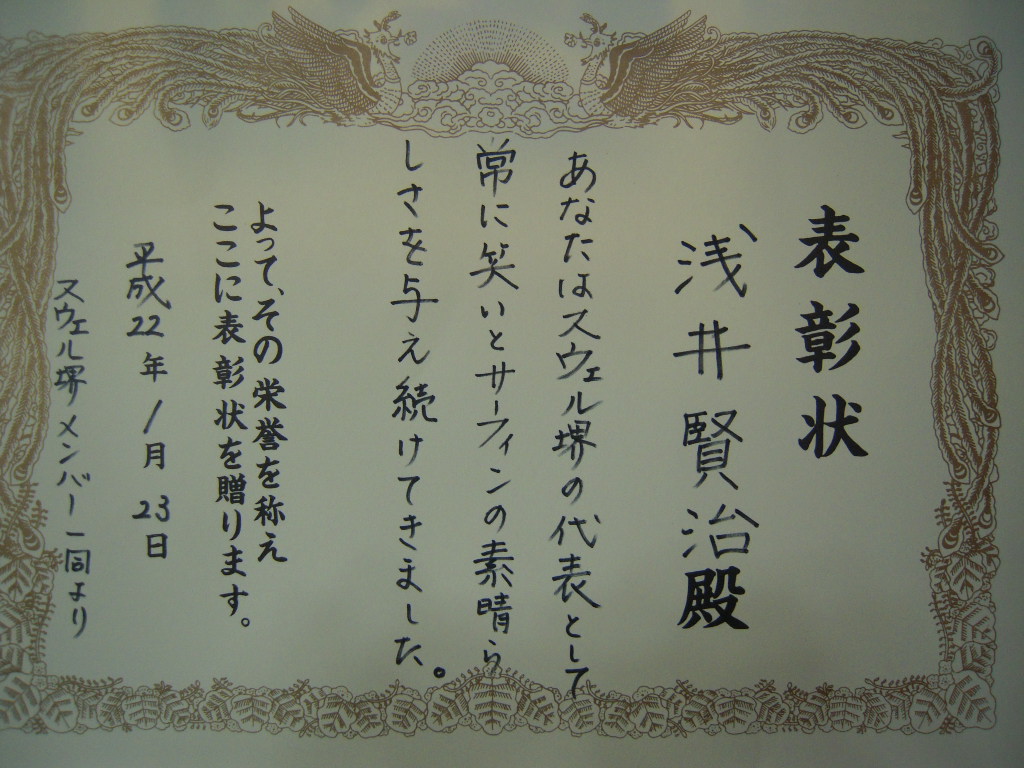 表彰状
浅井賢治殿
あなたはスウェル堺の代表として
常に笑いとサーフィンの素晴ら
しさを与え続けてきました。
よって、その栄誉を称え
ここに表彰状を贈ります。
平成22年1月23日
スウェル堺メンバー一同より